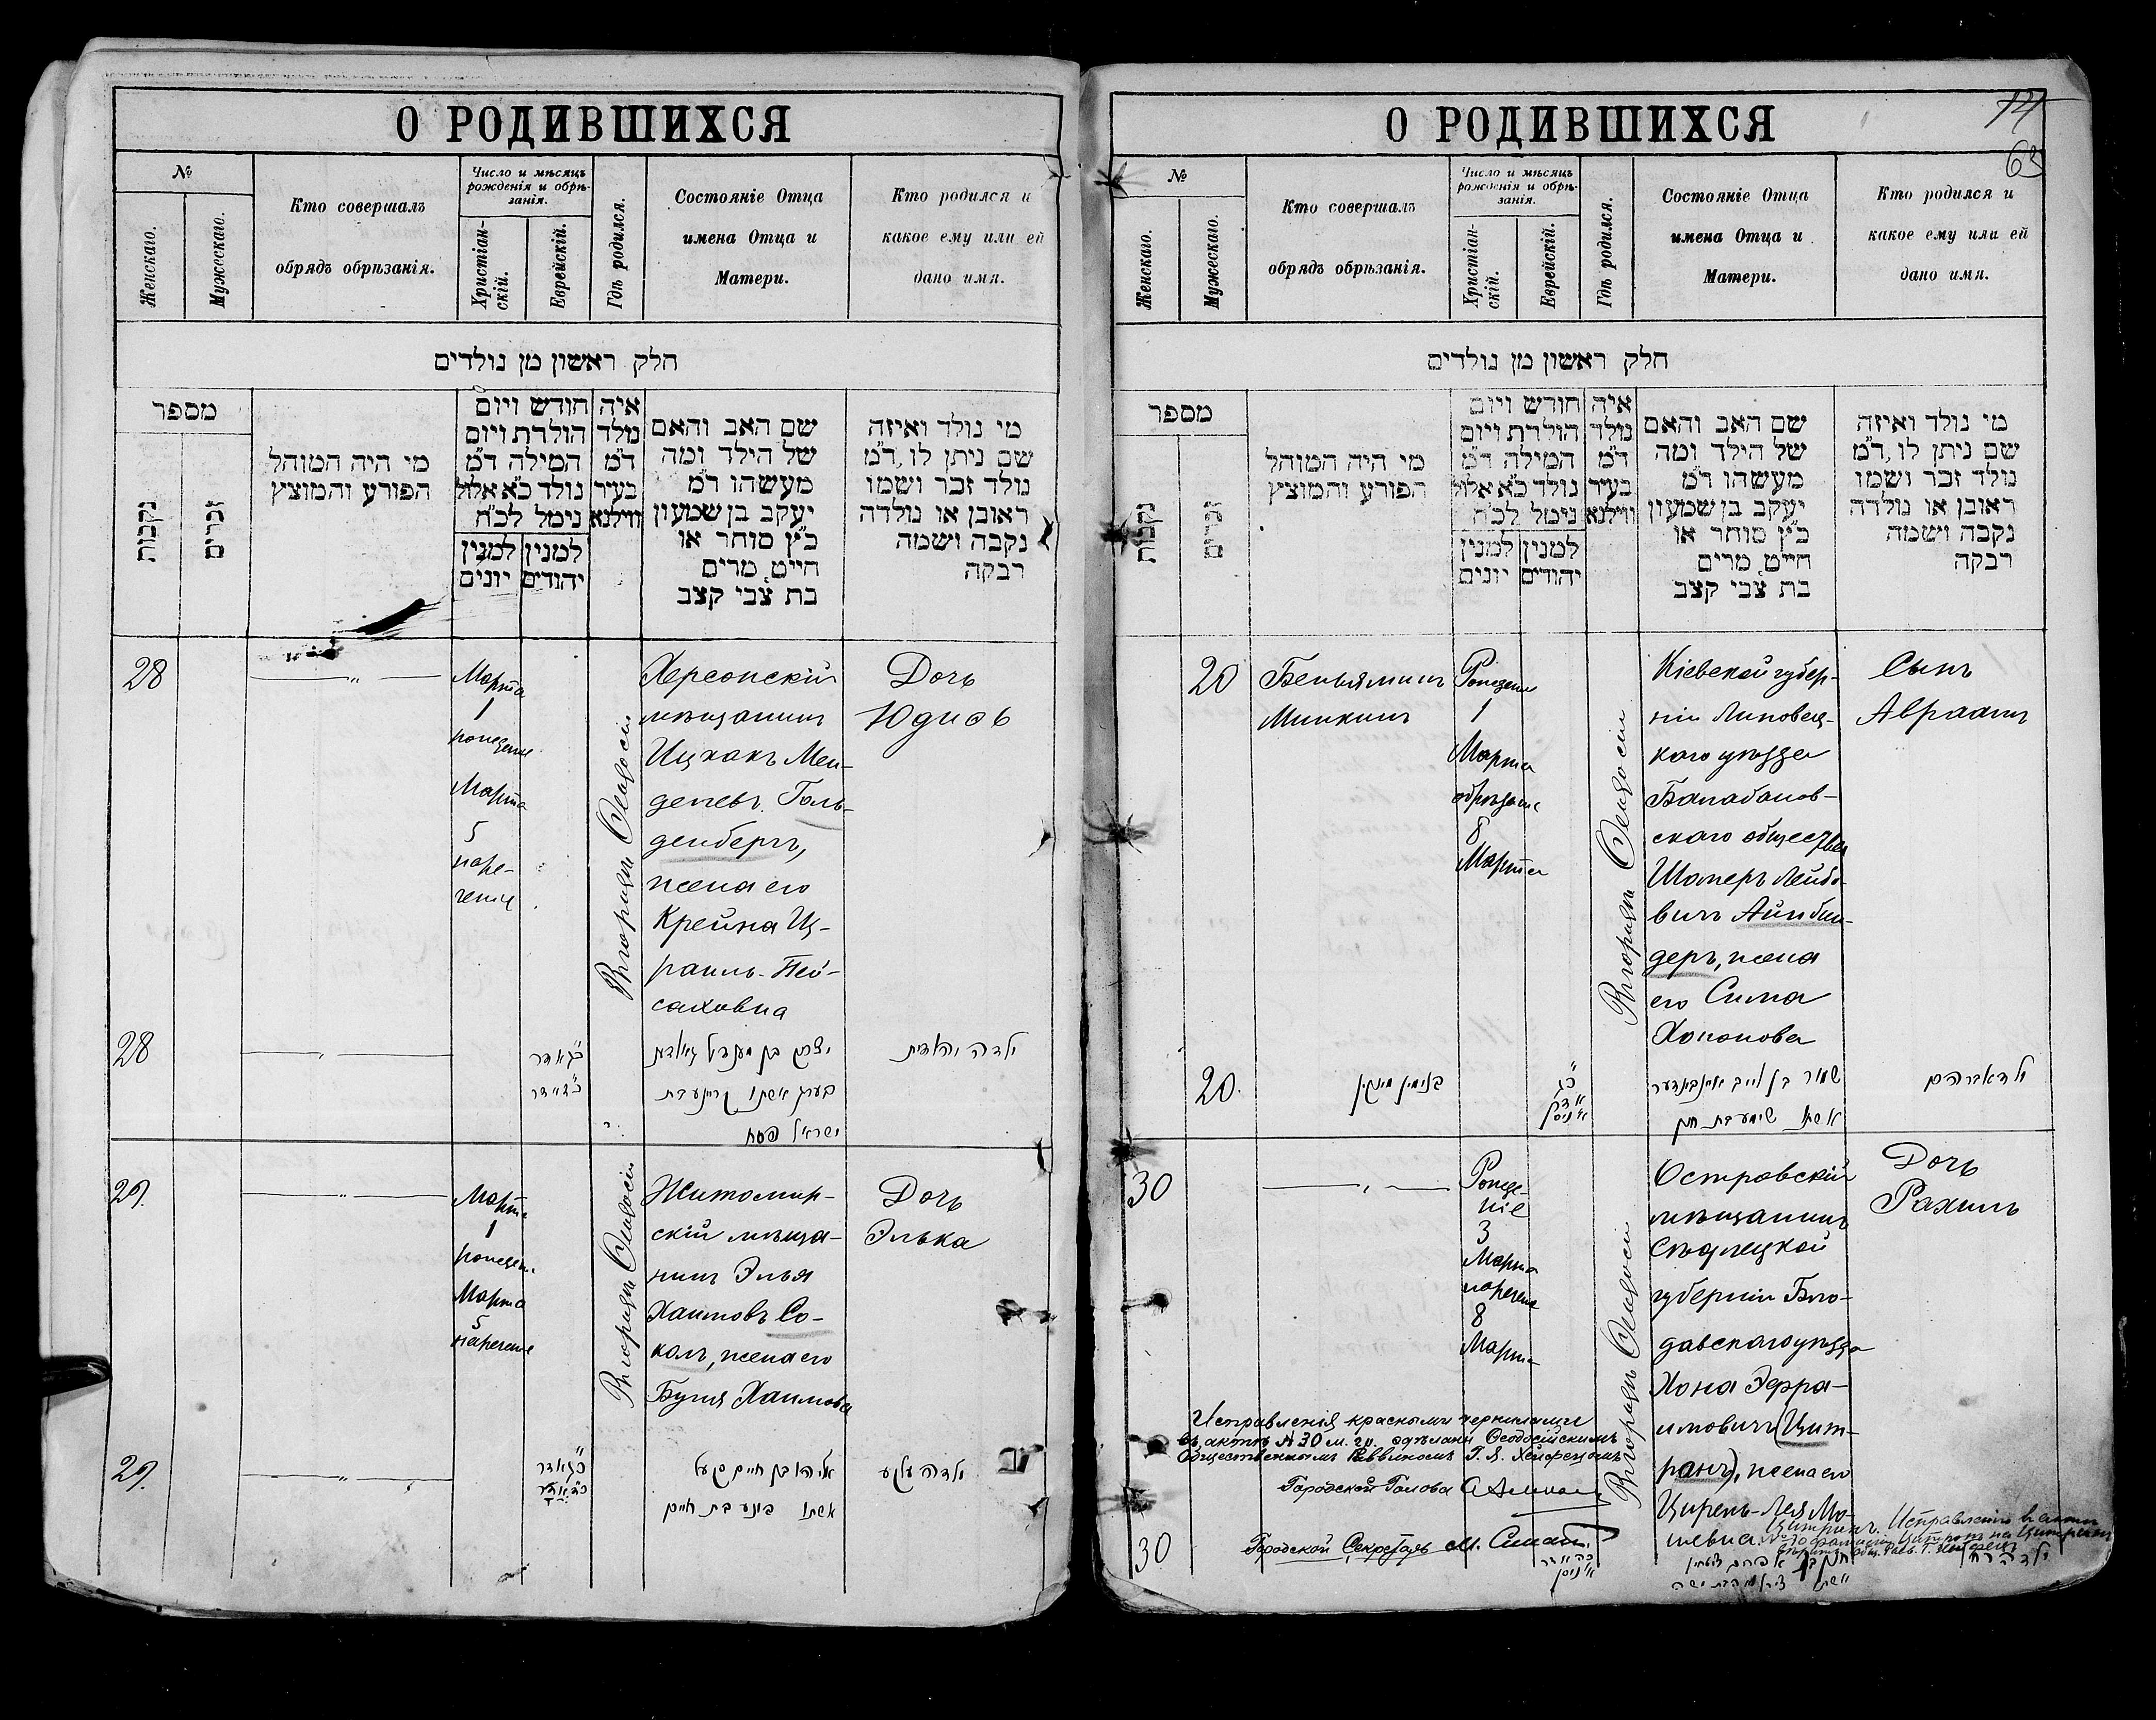 О РОДИВШИХСЯ
№
Женскаго.
Мужескаго.
Кто совершалъ
обрядъ обрѣзанія.
Число и мѣсяцъ
рожденія и обрѣ-
занія.
Христіан-
скій.
Еврейскій.
Гдѣ родился.
Состояніе Отца
имена Отца и
Матери.
Кто родился и
какое ему или ей
дано имя.
חלק ראשון מן נולדים
מספר
נקבות
זכרים
מי היה המוהל
הפורע והמוצץ
חודש ויום
הולדת ויום
המילה ד״מ
נולד כ״א אלול
נימל לכ״ח
למנין יהודים
למנין יונים
איה
נולד
ד״מ
בעיר
ווילנא
שם האב והאם
של הילד ומה
מעשהו ד״מ
יעקב בן שמעון
כ״ץ סוחר או
חייט, מרים
בת צבי קצב
מי נולד ואיזה
שם ניתן לו, ד״מ
נולד זכר ושמו
ראובן או נולדה
נקבה ושמה
רבקה
28
Марта
1
рожденіе
Марта
5
наре-
ченіе
Въ городѣ Ѳеодосіи
Херсонскій
мѣщанинъ
Ицхакъ Мен-
делевъ Голь-
денбергъ,
жена его
Крейна Из-
раиль-Пей-
саховна
Дочь
Юдиѳь
28
כ״ג אדר
יצחק בן מענדיל גאלדט
בערג אשתו קריינע בת
ישראל פסח
ילדה יהודית
29.
Марта
1
рожденіе
Марта
5
нареченіе
Въ городѣ Ѳеодосіи
Житомир-
скій мѣща-
нинъ Элья
Хаимовъ Со-
колъ, жена его
Буня Хаимова
Дочь
Элька
29.
כ״ג אדר
אליהו בן חיים סקעל
אשתו בונע בת חיים
ילדה עלקע
О РОДИВШИХСЯ
14
63
№
Женскаго.
Мужескаго.
Кто совершалъ
обрядъ обрѣзанія.
Число и мѣсяцъ
рожденія и обрѣ-
занія.
Христіан-
скій.
Еврейскій.
Гдѣ родился.
Состояніе Отца
имена Отца и
Матери.
Кто родился и
какое ему или ей
дано имя.
חלק ראשון מן נולדים
מספר
נקבות
זכרים
מי היה המוהל
הפורע והמוצץ
חודש ויום
הולדת ויום
המילה ד״מ
נולד כ״א אלול
נימל לכ״ח
למנין יהודים
למנין יונים
איה
נולד
ד״מ
בעיר
ווילנא
שם האב והאם
של הילד ומה
מעשהו ד״מ
יעקב בן שמעון
כ״ץ סוחר או
חייט, מרים
בת צבי קצב
מי נולד ואיזה
שם ניתן לו, ד״מ
נולד זכר ושמו
ראובן או נולדה
נקבה ושמה
רבקה
20
Беньяминъ
Минкинъ
Рожденіе
1
Марта
обрѣзаніе
8
Марта
Въ городѣ Ѳеодосіи
Кіевской губер-
ніи Липовец-
каго уѣзда
Балабанов-
скаго общества
Шомеръ Лейбо-
вичъ Айнбин-
деръ, жена
его Сима
Хононова
Сынъ
Авраамъ
20.
בנימין מינקין
כ״ג
אדר
א׳ ניסן
שמור בן לייב איינבינדער
אשתו שימע בת חנן
ילד אברהם
30
Рожде-
ніе
3
Марта
нареченіе
8
Марта
Въ городѣ Ѳеодосіи
Островскій
мѣщанинъ
Сѣдлецкой
губерніи Вло-
давскаго уѣзда
Хона Эфра-
имовичъ (Цит-
ранъ), жена его
Цирень-Лея Мо-
шевна
Дочь
Рахиль
Исправленія красными чернилами
въ актѣ №30 м. г. сдѣланы Ѳеодосійскимъ
Общественнымъ Раввиномъ Г. Я. Хейфецомъ
Городской Голова
Городской Секретарь М.
30
כ״ה אדר
א׳ ניסן
חנן בן אפרים ציטרין
ילדה רחל